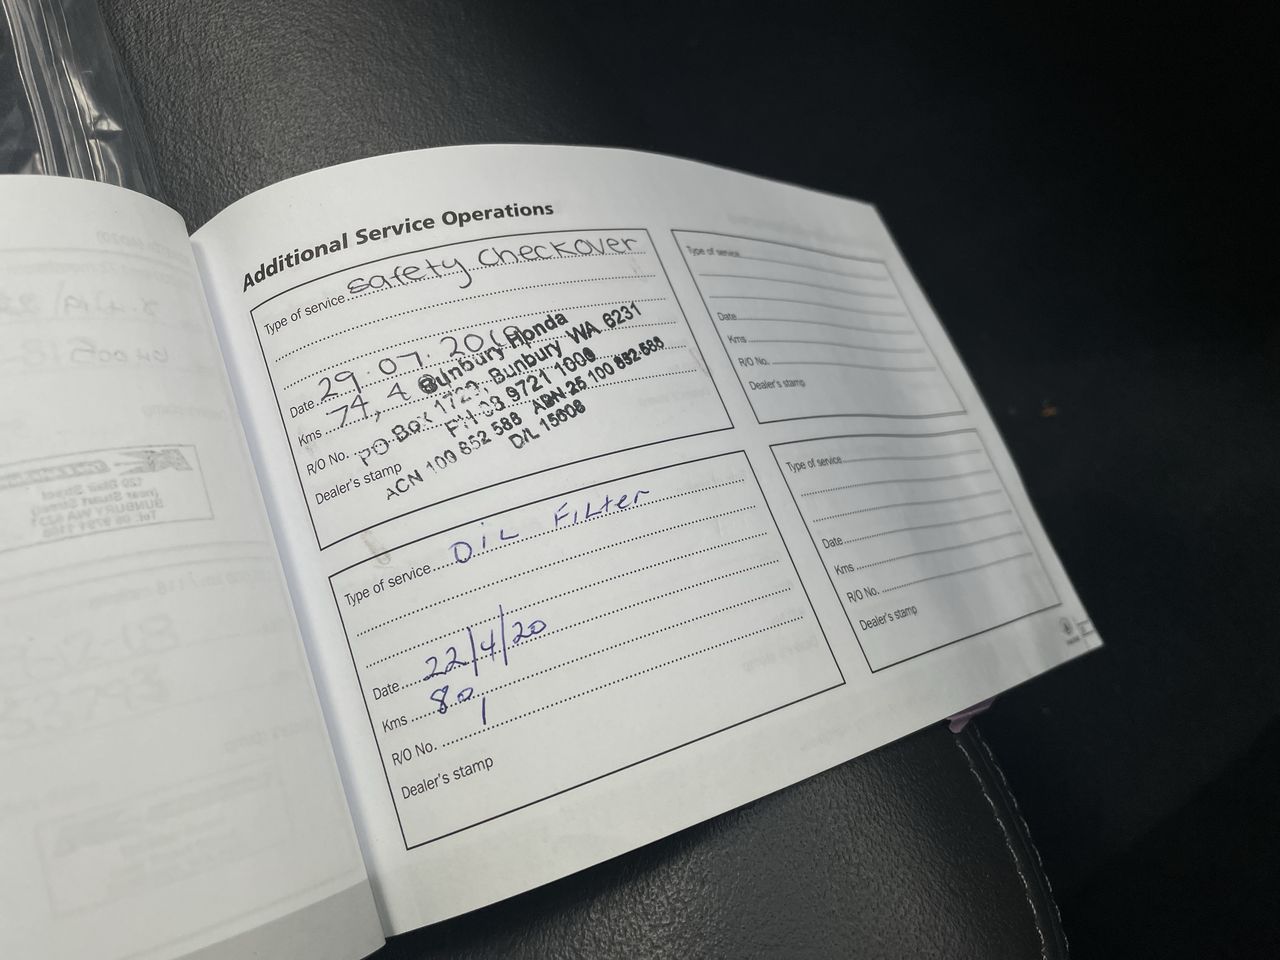 Additional Service Operations
Type of service safety checkover
Date 29.07.20
Kms 74, 4
R/O No.
Dealer's stamp
Bunbury Honda
PO Box 1729, Bunbury WA 6231
PH 08 9721 1000
ACN 100 852 588 ABN 25 100 852 588
D/L 15608
Type of service OiL FiLter
Date 22/4/20
Kms 80
R/O No.
Dealer's stamp
Type of service
Date
Kms
R/O No.
Dealer's stamp
Type of service
Date
Kms
R/O No.
Dealer's stamp